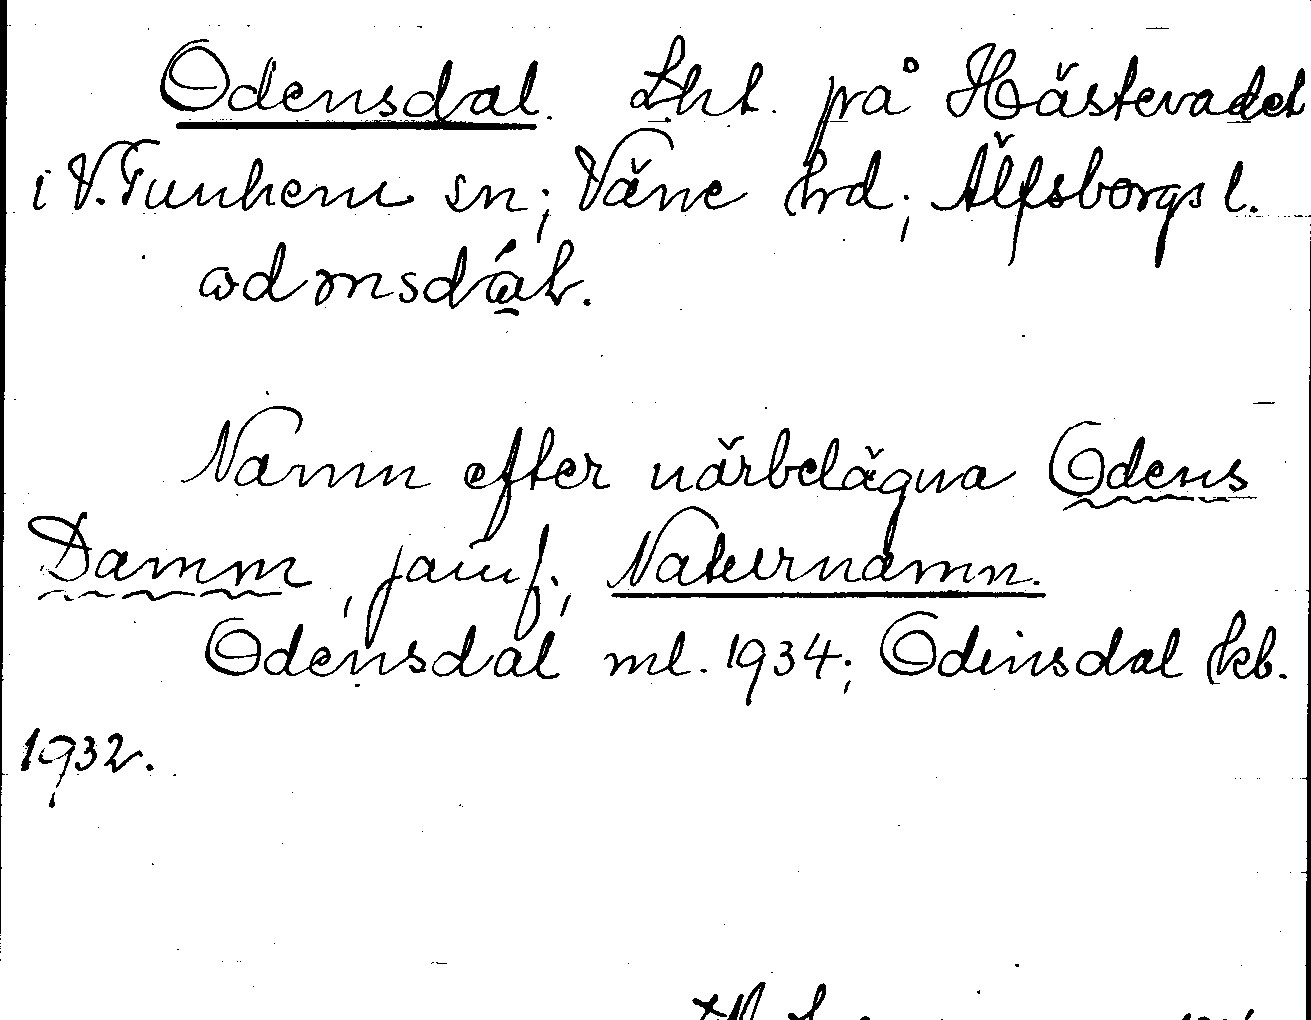 Odensdal. Lht. på Hästevadet
i V. Tunhem sn; Väne hrd; Älfsborgs l.
Namn efter närbelägna Odens
Damm, jämf. Naturnamn.
Odensdal ml. 1934; Odinsdal kb.
1932.